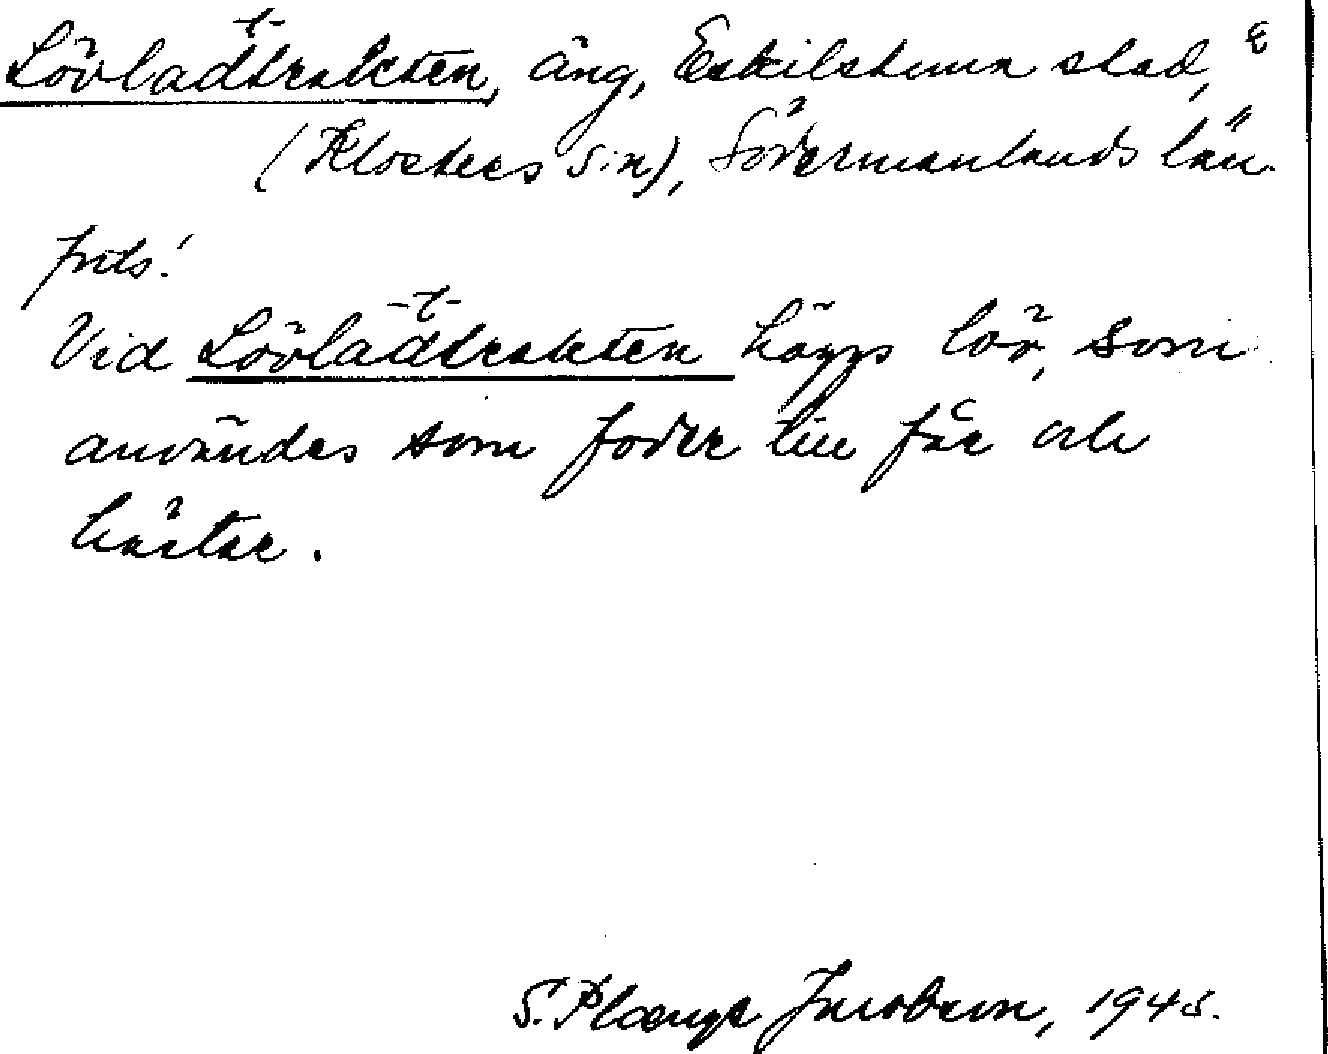 -t-
Lövlädtrakten, äng, Eskilstuna stad,
(Klosters s:n), Södermanlands län.
prits!
-t-
Vid Lövlädtrakten höggs löv, som
användes som foder till får och
hästar.
S. Jacobson, 1945.